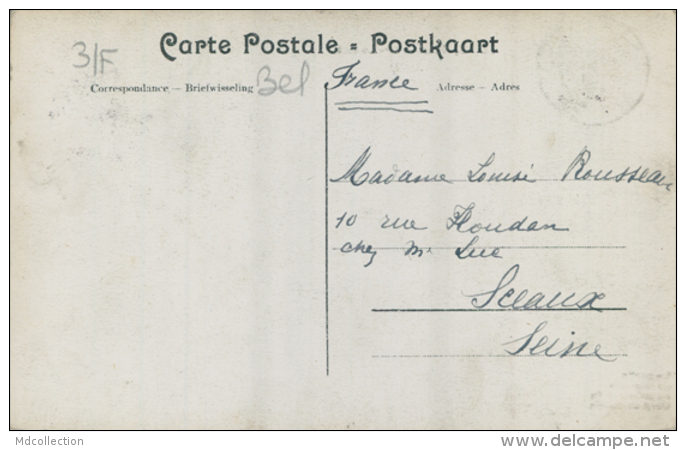 Carte Postale = Postkaart
3/F
Correspondance — Briefwisseling
Bel
France
Adresse — Adres
Madame Louise Rousseau
10 rue Houdan
chez Mr Luc
Sceaux
Seine
Mdcollection
www.delcampe.net